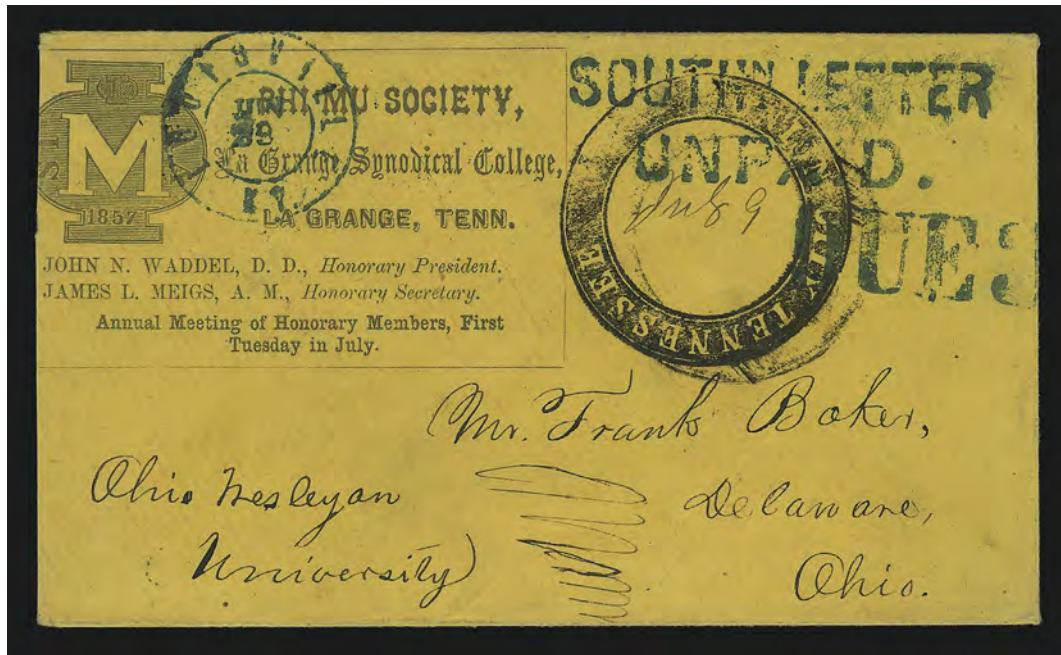 PHI MU SOCIETY,
La Grange Synodical College,
LA GRANGE, TENN.
M
1857
JOHN N. WADDEL, D. D., Honorary President.
JAMES L. MEIGS, A. M., Honorary Secretary.
Annual Meeting of Honorary Members, First
Tuesday in July.
LOUISVILLE
KY.
SOUTHN. LETTER
UNPAID.
DUE 3
TENNESSEE
Mr. Frank Baker,
Ohio Wesleyan
University
Delaware,
Ohio.